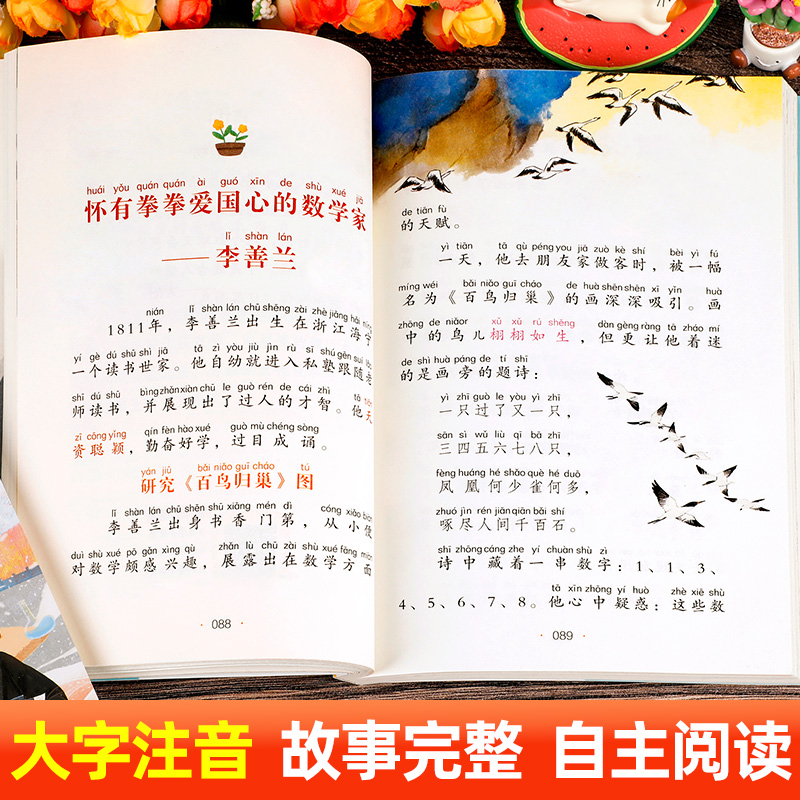 huái yǒu quán quán ài guó xīn de shù xué jiā
怀有拳拳爱国心的数学家
lǐ shàn lán
——李善兰
nián lǐ shàn lán chū shēng zài zhè jiāng hǎi níng
1811年，李善兰出生在浙江海宁
yí gè dú shū shì jiā tā zì yòu jiù jìn rù sī shú gēn suí lǎo
一个读书世家。他自幼就进入私塾跟随老
shī dú shū bìng zhǎn xiàn chū le guò rén de cái zhì tā tiān
师读书，并展现出了过人的才智。他天
zī cōng yǐng qín fèn hào xué guò mù chéng sòng
资聪颖，勤奋好学，过目成诵。
yán jiū bǎi niǎo guī cháo tú
研究《百鸟归巢》图
lǐ shàn lán chū shēn shū xiāng mén dì cóng xiǎo biàn
李善兰出身书香门第，从小便
duì shù xué pō gǎn xìng qù zhǎn lù chū zài shù xué fāng miàn
对数学颇感兴趣，展露出在数学方面
· 088 ·
de tiān fù
的天赋。
yì tiān tā qù péng you jiā zuò kè shí bèi yì fú
一天，他去朋友家做客时，被一幅
míng wéi bǎi niǎo guī cháo de huà shēn shēn xī yǐn huà
名为《百鸟归巢》的画深深吸引。画
zhōng de niǎor xǔ xǔ rú shēng dàn gèng ràng tā zháo mí
中的鸟儿栩栩如生，但更让他着迷
de shì huà páng de tí shī
的是画旁的题诗：
yì zhī guò le yòu yì zhī
一只过了又一只，
sān sì wǔ liù qī bā zhī
三四五六七八只，
fèng huáng hé shǎo què hé duō
凤凰何少雀何多，
zhuó jìn rén jiān qiān bǎi shí
啄尽人间千百石。
shī zhōng cáng zhe yí chuàn shù zì
诗中藏着一串数字：1、1、3、
tā xīn zhōng yí huò zhè xiē shù
4、5、6、7、8。他心中疑惑：这些数
· 089 ·
大字注音 故事完整 自主阅读